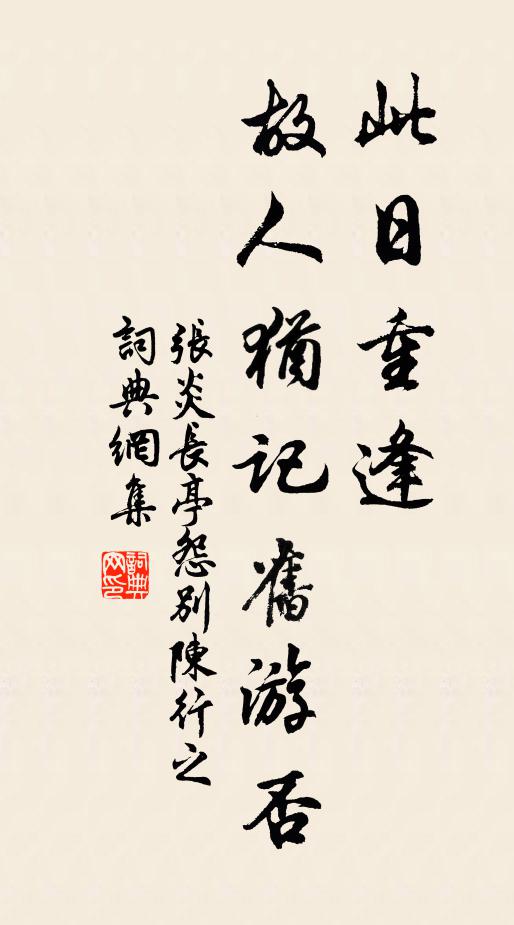 此日重逢
故人猶記舊游否
張炎長亭怨別陳行之
詞典網集
詞典网印